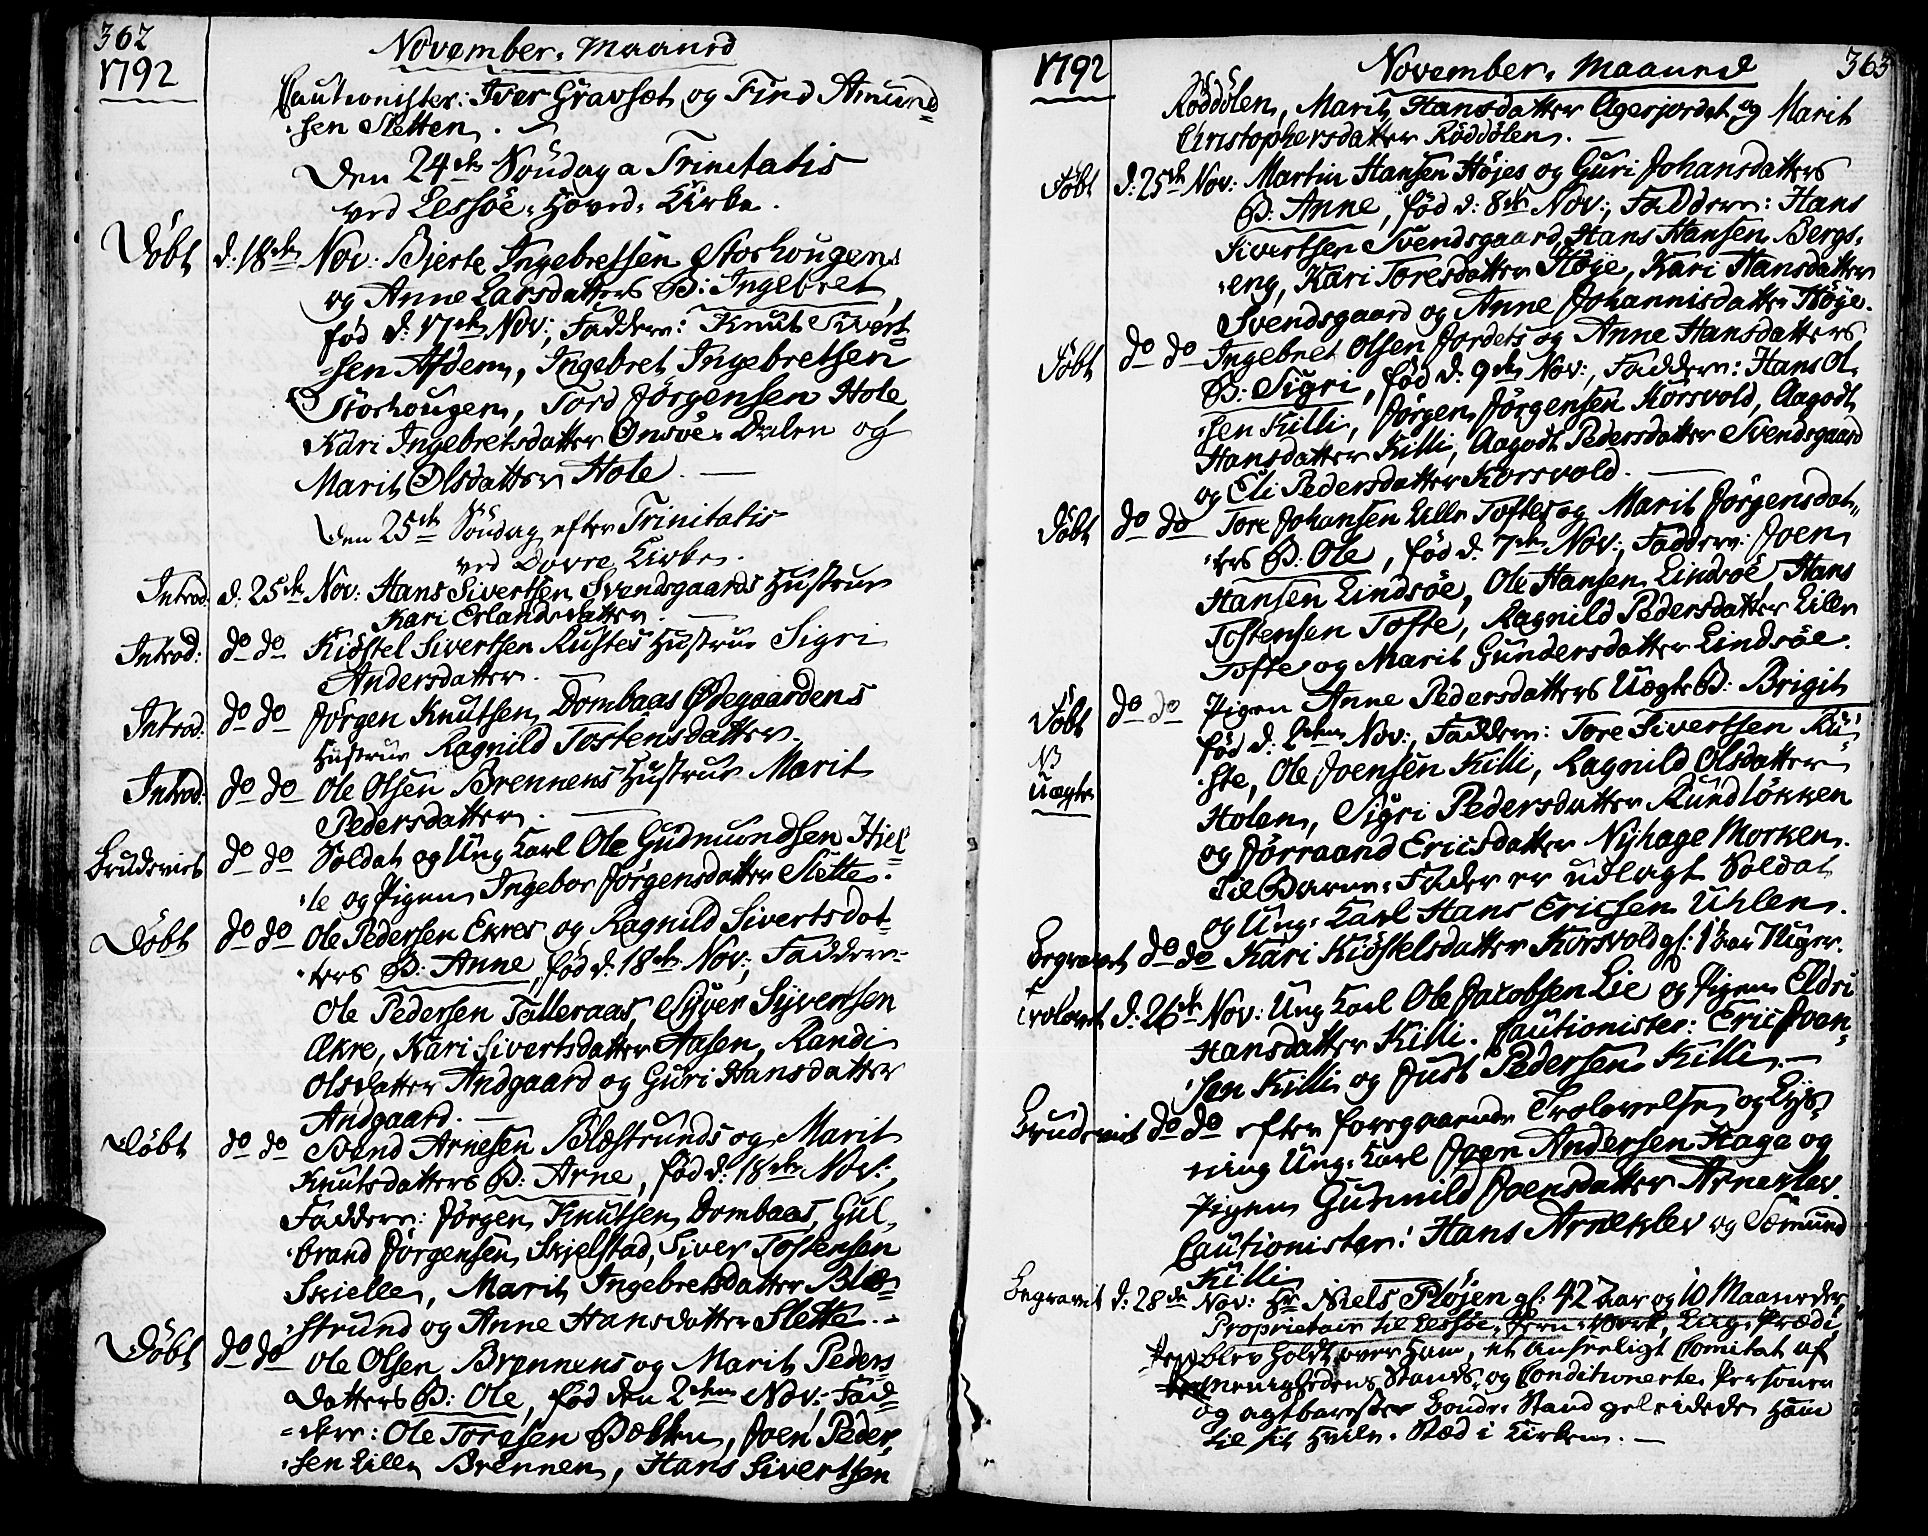 362
November. Maaned
1792
Cautionister: Iver Gravsæt og Find Amund=
sen Sletten.
Den 24de Søndag a Trinitatis
ved Lessøe. Hoved. Kirke.
Døbt d. 18de Nov: Bjerte Ingebretsen Storhougens
og Anne Larsdatters B: Ingebret,
fød d. 17de Nov:, Faddere: Knut Sivert=
=sen Afdem, Ingebret Ingebretsen
Storhougen, Tord Jørgensen Hole
Kari Ingebretsdatter Onsøe. Dalen og
Marit Olsdatter Hole.
Den 25de Søndag efter Trinitatis
ved Dovre Kirke.
Introd: d. 25de Nov: Hans Sivertsen Svendsgaards Hustrue
Kari Erlandsdatter.
Introd: do do Kiøstel Sivertsen Rustes Hustrue Sigri
Andersdatter.
Introd: do do Jørgen Knutsen Dombaas Ødegaardens
Hustrue Ragnild Tostensdatter.
Introd: do do Ole Olsen Brennens Hustrue Marit
Pedersdatter.
Brudeviet do do Soldat og Ung Karl Ole Gudmundsen Hiel=
le og Pigen Ingebor Jørgensdatter Slette.
Døbt do do Ole Pedersen Ekres og Ragnild Sivertsdat=
ters B: Anne, fød d. 18de Nov:, Faddere
Ole Pedersen Talleraas, Syver Syversen
Ækre, Kari Sivertsdatter Aasen, Randi
Olsdatter Andgaard og Guri Hansdatter
Andgaard.
Døbt do do Svend Arnesen Blæstrunds og Marit
Knutsdatters B: Arne, fød d. 18de Nov:,
Faddere: Jørgen Knutsen Dombaas, Gul=
brand Jørgensen Skjelstad, Siver Tostensen
Skielle, Marit Ingebretsdatter Blæ=
strund og Anne Hansdatter Slette.
Døbt do do Ole Olsen Brennens og Marit Peders=
datters B: Ole, fød den 2den Nov:, Fad=
=dere: Ole Toresen Bækken, Joen Peder=
sen Lille Brennen, Hans Sivertsen
1792
November. Maaned
363
Røddølen, Marit Hansdatter Agerjordet og Marit
Christophersdatter Røddølen.
Døbt d: 25de Nov: Martin Hansen Højes og Guri Johansdatters
B: Anne, fød d: 8de Nov:, Faddere: Hans
Sivertsen Svendsgaard, Hans Hansen Bergs=
eng, Kari Toresdatter Høye, Kari Hansdatter
Svendsgaard og Anne Johannisdatter Høye.
Døbt do do Ingebret Olsen Jordets og Anne Hansdatters
B: Sigri, fød d. 9de Nov:, Faddere: Hans Ol=
sen Killi, Jørgen Jørgensen Korsvold, Aagodt
Hansdatter Killi, Aagodt Pedersdatter Svendsgaard
og Eli Pedersdatter Korsvold.
Døbt do do Tore Johansen Lille Toftes og Marit Jørgensdat=
ters B: Ole, fød d. 7de Nov:, Faddere: Joen
Hansen Lindsøe, Ole Hansen Lindsøe, Hans
Tostensen Tofte, Ragnild Pedersdatter Lille
Tofte og Marit Gundersdatter Lindsøe.
Døbt do do Pigen Anne Pedersdatters Uægte B: Brigit
NB
Uægte
fød d: 2den Nov:, Faddere: Tore Sivertsen Ru=
ste, Ole Joensen Killi, Ragnild Olsdatter
Holen, Sigri Pedersdatter Rundløkken
og Jørraand Ericsdatter Nyhage Morken.
Til Barne. Fader er udlagt Soldat
og Ung. Karl Hans Ericsen Uhlen.
Begravet do do Kari Kiøstelsdatter Korsvold gl: 1 Aar 7 Uger.
Trolovet d: 26de Nov: Ung Karl Ole Jacobsen Lie og Pigen Eldri
Hansdatter Killi. Cautionister: Eric Joen=
sen Killi og Just Pedersen Killi.
Brudeviet do do efter foregaaende Trolovelse og Lys=
ning Ung. Karl Joen Andersen Haga og
Pigen Gunnild Joensdatter Arneklev.
Cautionister: Hans Arneklev og Sæmund
Killi
Begravet d: 28de Nov: Hr Niels Pløjen gl: 42 Aar og 10 Maaneder,
Proprietair til Lessøe. Jern. Værk, Liig. Prædi=
ken blev holdt over Ham, et anseeligt Comitat af
Menighedens Stands. og Conditionerte Personer
og agtbareste Bonde. Stand geleidede Ham
til sit Hvile. Stæd i Kirken.